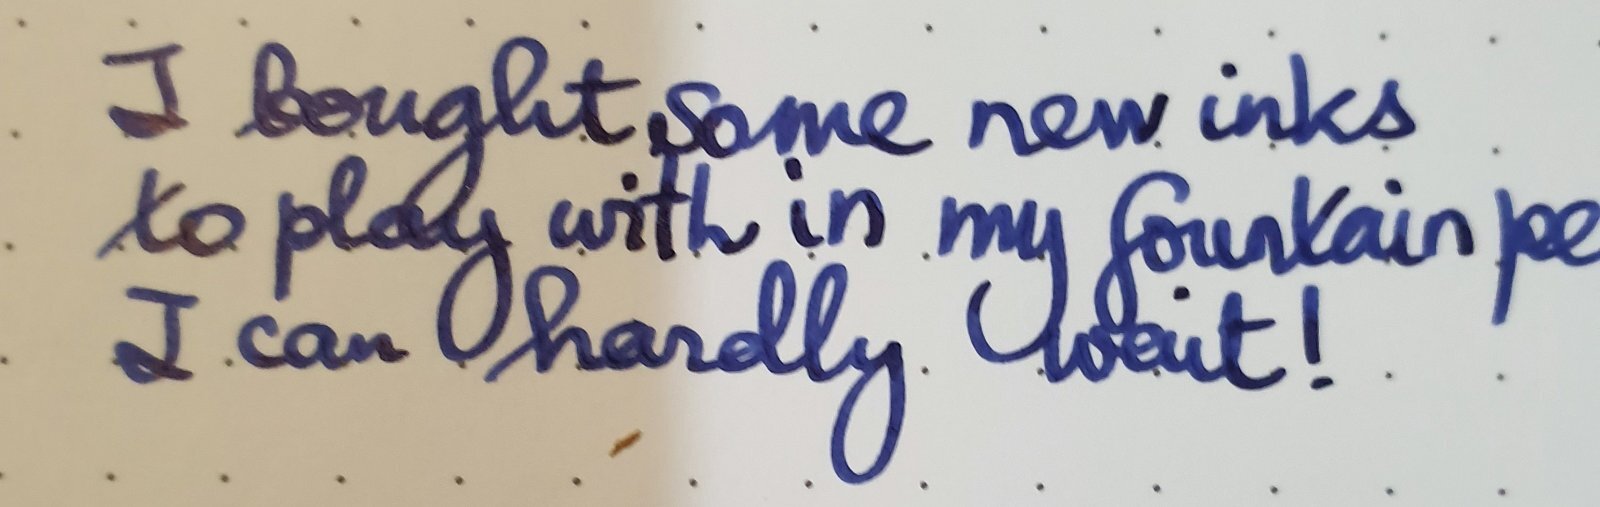 I bought some new inks
to play with in my fountain pe
I can hardly wait!